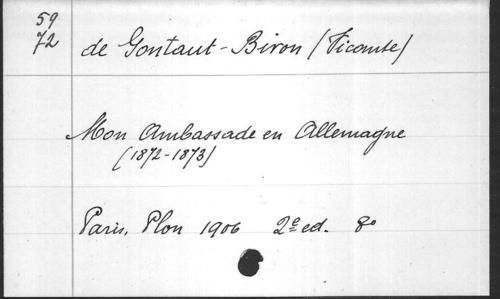 59
72
de Gontaut-Biron (Vicomte)
Mon Ambassade en Allemagne
(1872-1873)
Paris, Plon 1906 2e ed. 8o